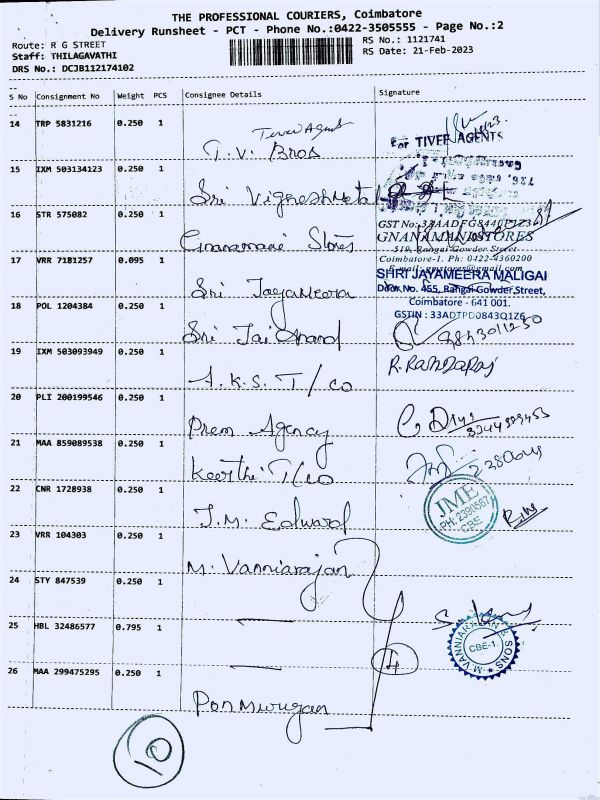 THE PROFESSIONAL COURIERS, Coimbatore
Delivery Runsheet - PCT - Phone No.:0422-3505555 - Page No.:2
Route: R G STREET
RS No.: 1121741
Staff: THILAGAVATHI
RS Date: 21-Feb-2023
DRS No.: DCJB112174102
S No Consignment No Weight PCS Consignee Details Signature
14 TRP 5831216 0.250 1
Tiver Agents
T.V. Bros
For TIVER AGENTS
15 IXM 503134123 0.250 1
Sri Vignesh Metal
16 STR 575082 0.250 1
Gnanamani Stores
GNANAMANI STORES
510, Rangai Gowder Street
Coimbatore-1. Ph: 0422-4360200
E-mail: gmstores@gmail.com
17 VRR 7181257 0.095 1
Sri Jayameera
SHRI JAYAMEERA MALIGAI
Door No. 455, Rangai Gowder Street,
Coimbatore - 641 001.
GSTIN : 33ADTPD0843Q1Z6
18 POL 1204384 0.250 1
Sri Jai Anand
9843011230
19 IXM 503093949 0.250 1
A.K.S. T/co
R. RANGARAJ
20 PLI 200199546 0.250 1
Prem Agency
21 MAA 859089538 0.250 1
Keerthi T/co
22 CNR 1728938 0.250 1
J.M. Edward
JME
PH: 2390567
CBE
23 VRR 104303 0.250 1
M. Vanniarajan
24 STY 847539 0.250 1
25 HBL 32486577 0.795 1
M. VANNIARAJAN & SONS
CBE-1.
26 MAA 299475295 0.250 1
4
Ponmurugan
10